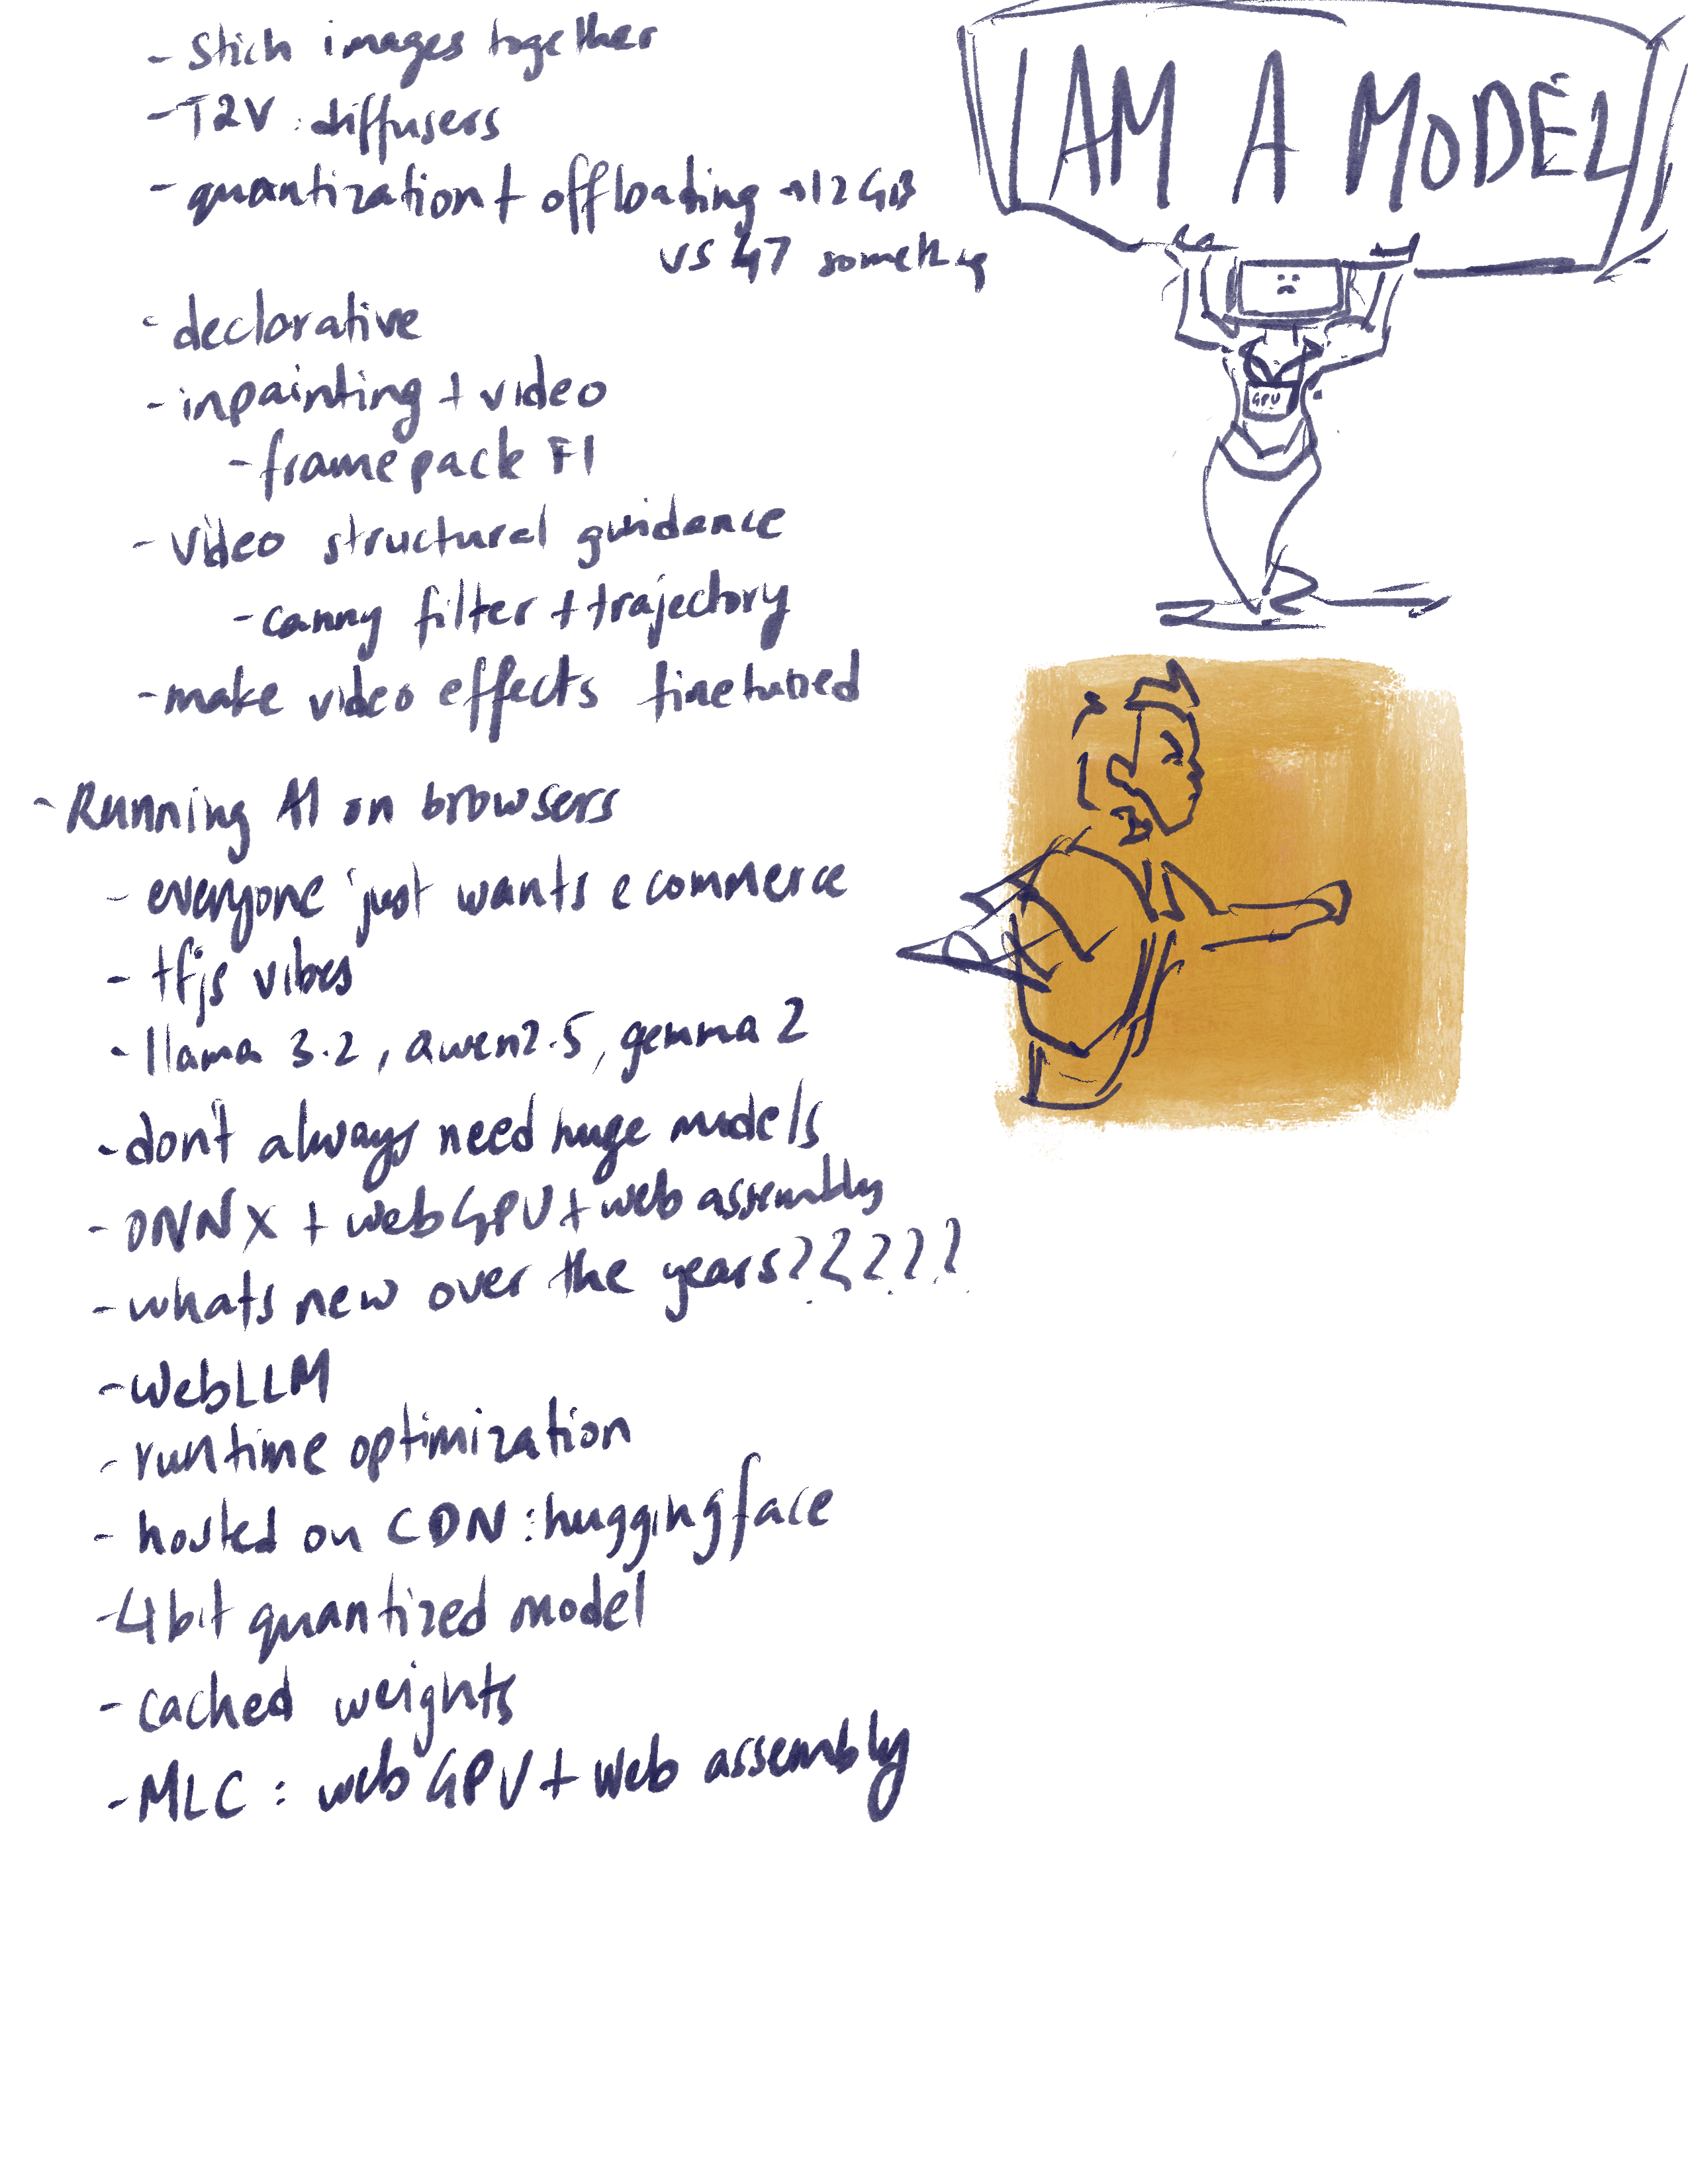 - Stich images together
- T2V : diffusers
- quantization + offloading → 12 GB
vs 47 something
- declarative
- inpainting + video
- framepack F1
- video structural guidance
- canny filter + trajectory
- make video effects finetuned
- Running AI on browsers
- everyone just wants ecommerce
- tfjs vibes
- llama 3.2, qwen2.5, gemma 2
- dont always need huge models
- ONNX + webGPU + web assembly
- whats new over the years?????
- WebLLM
- runtime optimization
- hosted on CDN : huggingface
- 4bit quantized model
- cached weights
- MLC : webGPU + web assembly
I AM A MODEL
GPU